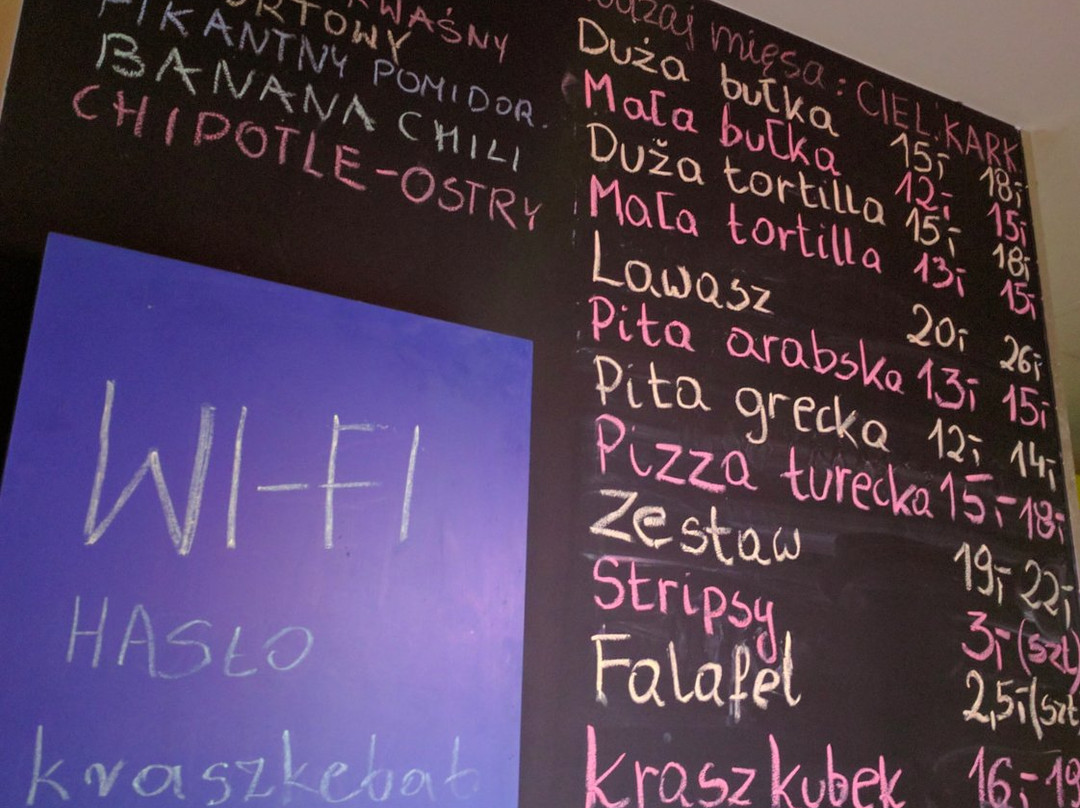 KWAŚNY
PIKANTNY POMIDOR.
BANANA CHILI
CHIPOTLE-OSTRY
WI-FI
HASŁO
kraszkebab
mięsa: CIEL. KARK.
Duża bułka 15,- 18,-
Mała bułka 12,- 15,-
Duża tortilla 15,- 18,-
Mała tortilla 13,- 15,-
Lawasz 20,- 26,-
Pita arabska 13,- 15,-
Pita grecka 12,- 14,-
Pizza turecka 15,- 18,-
Zestaw 19,- 22,-
Stripsy 3,- (szt)
Falafel 2,5,- (szt
kraszkubek 16,- 19